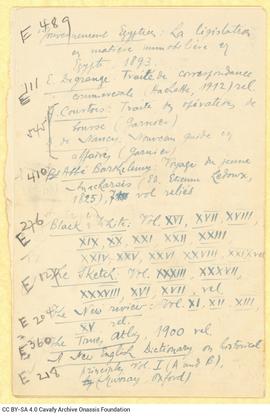 E 489
Gouvernement Egyptien: La législation
en matière immobilière en
Egypte. 1893.
E 111
E. Degrange: Traité de correspondance
commerciale (Hachette, 1912) rel.
545
Courtois: Traité des opérations de
bourse (Garnier)
de Nancy: Nouveau guide en
affaires (Garnier)
E 410
Abbé Barthélemy: Voyage du jeune
Anacharsis (Ed. Etienne Ledoux,
1825), vol reliés
E 276
Black & White: Vol. XVI, XVII, XVIII,
XIX, XX, XXI, XXII, XXIII
E
The Sketch: Vol. XXXIII, XXXVII,
XXXVIII, XVI, XVII, rel.
E 204
The New review: Vol. XI, XII, XIII
XV. rel
E 360
The Times Atlas 1900 rel
E 218
A New English Dictionary on historical
principles, Vol. I (A and B),
(Murray Oxford)
CC BY-SA 4.0 Cavafy Archive Onassis Foundation